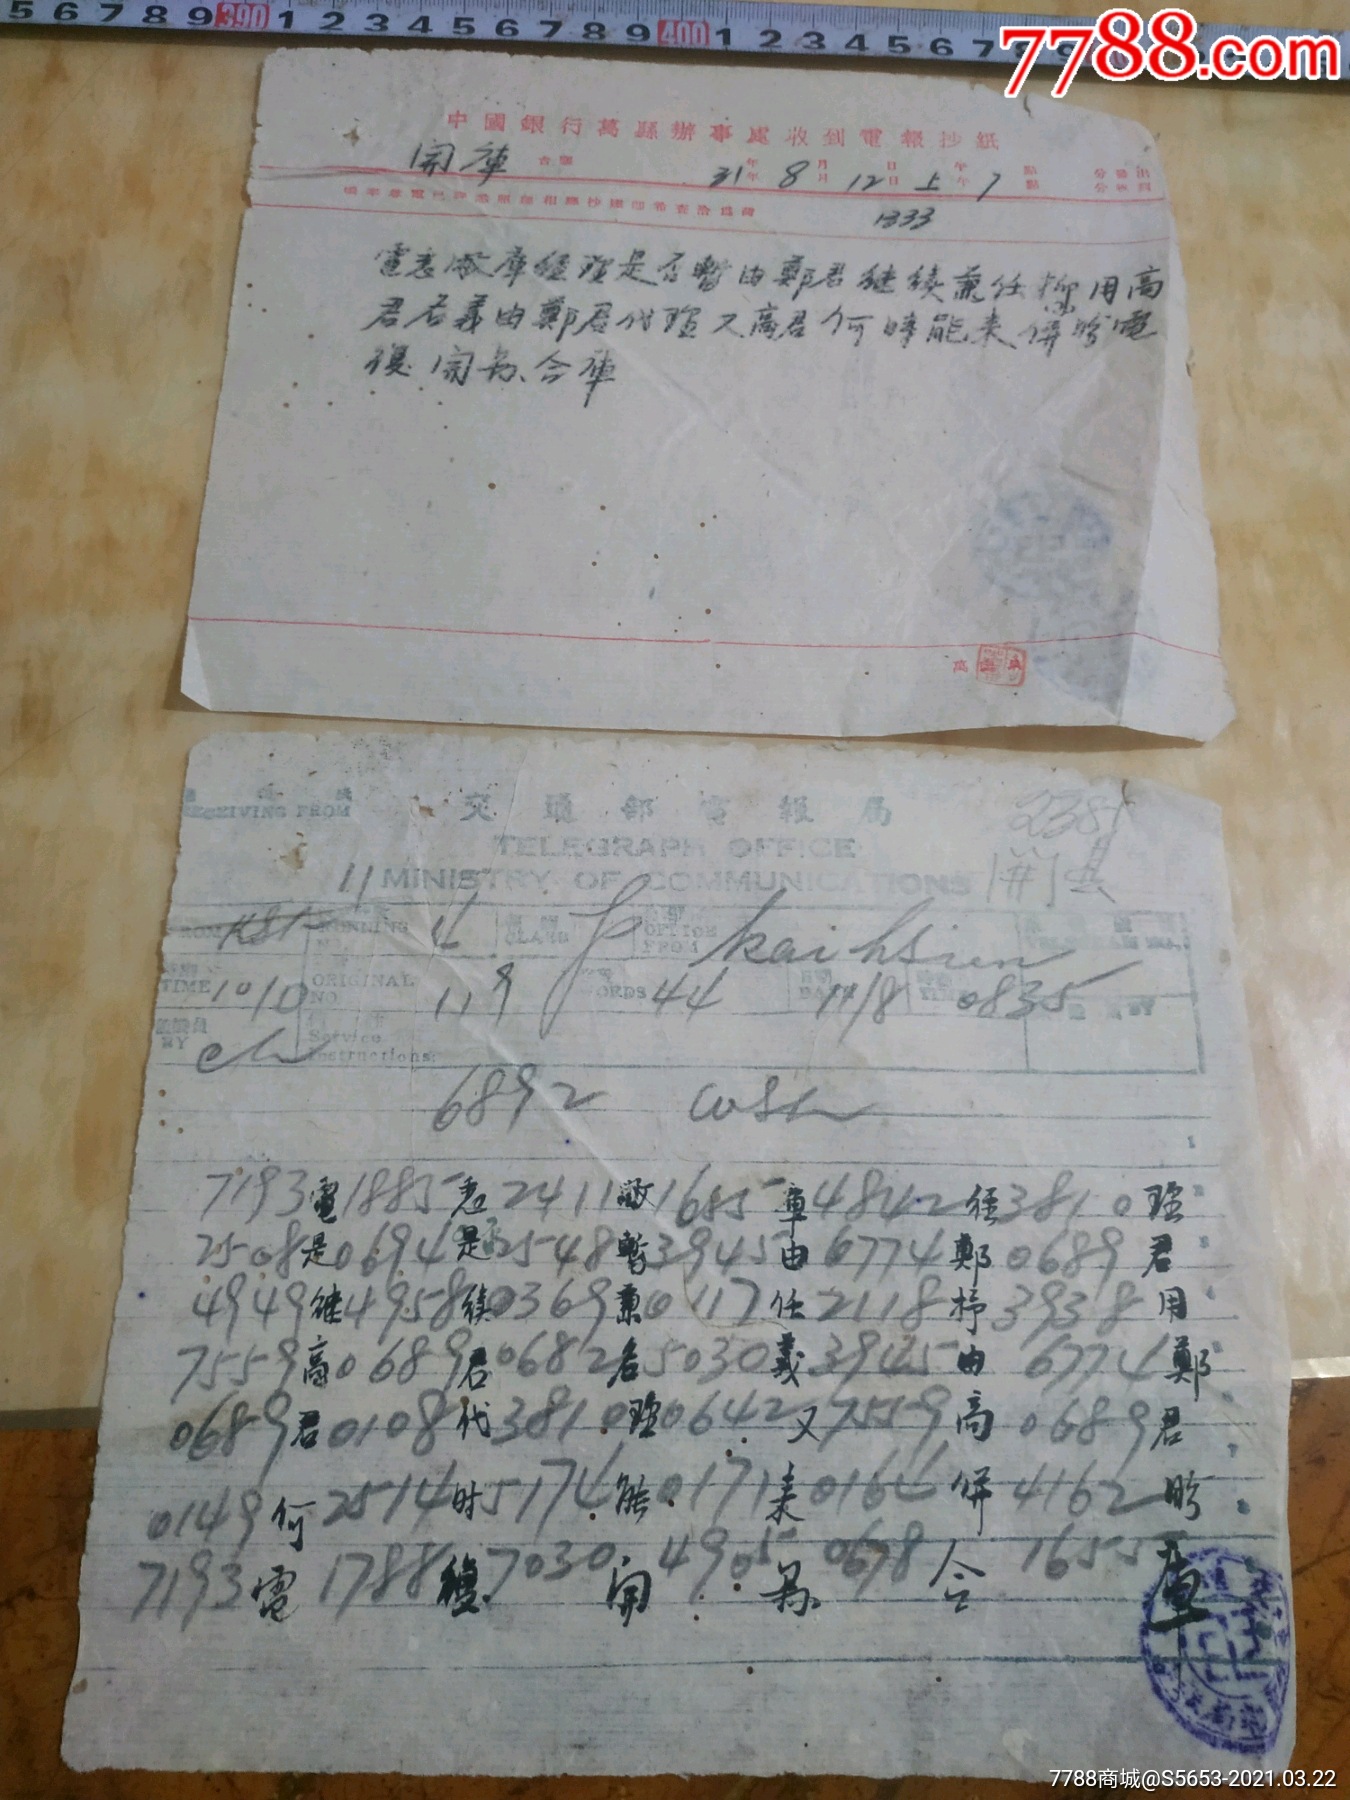 5 6 7 8 9 390 1 2 3 4 5 6 7 8 9 400 1 2 3 4 5 6 7 8
7788.com
中國銀行萬縣辦事處收到電報抄紙
開庫 31年8月12日上午7點
1333
電悉敝庫經理是否暫由鄭君继续兼任抑用高
君名義由鄭君代理又高君何時能來併盼電
復 開 合庫
RECEIVING FROM 交通部電報局 2385
TELEGRAPH OFFICE
11 MINISTRY OF COMMUNICATIONS 開县
CLASS OFFICE FROM Kai hsien
TIME 1010 ORIGINAL NO. 119 WORDS 44 DATE 11/8 TIME 0835
BY Service Instructions:
6892
7193電1885悉2411敝1655庫4842经3810理
2508是0694是否2548暫3945由6774鄭0689君
4949继4958续0369兼0117任2118抒3938用
7559高0689君0682名5030義3945由6774鄭
0689君0108代3810理0642又7559高0689君
0149何2514时5174能0171来0164併4162盼
7193電1788復7030開4905 0678合1655庫
7788商城@S5653-2021.03.22